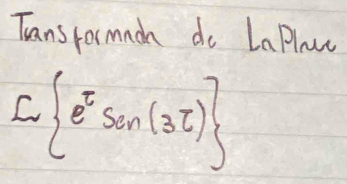 Transformada de LaPlace
L{e^τ sen(3τ)}